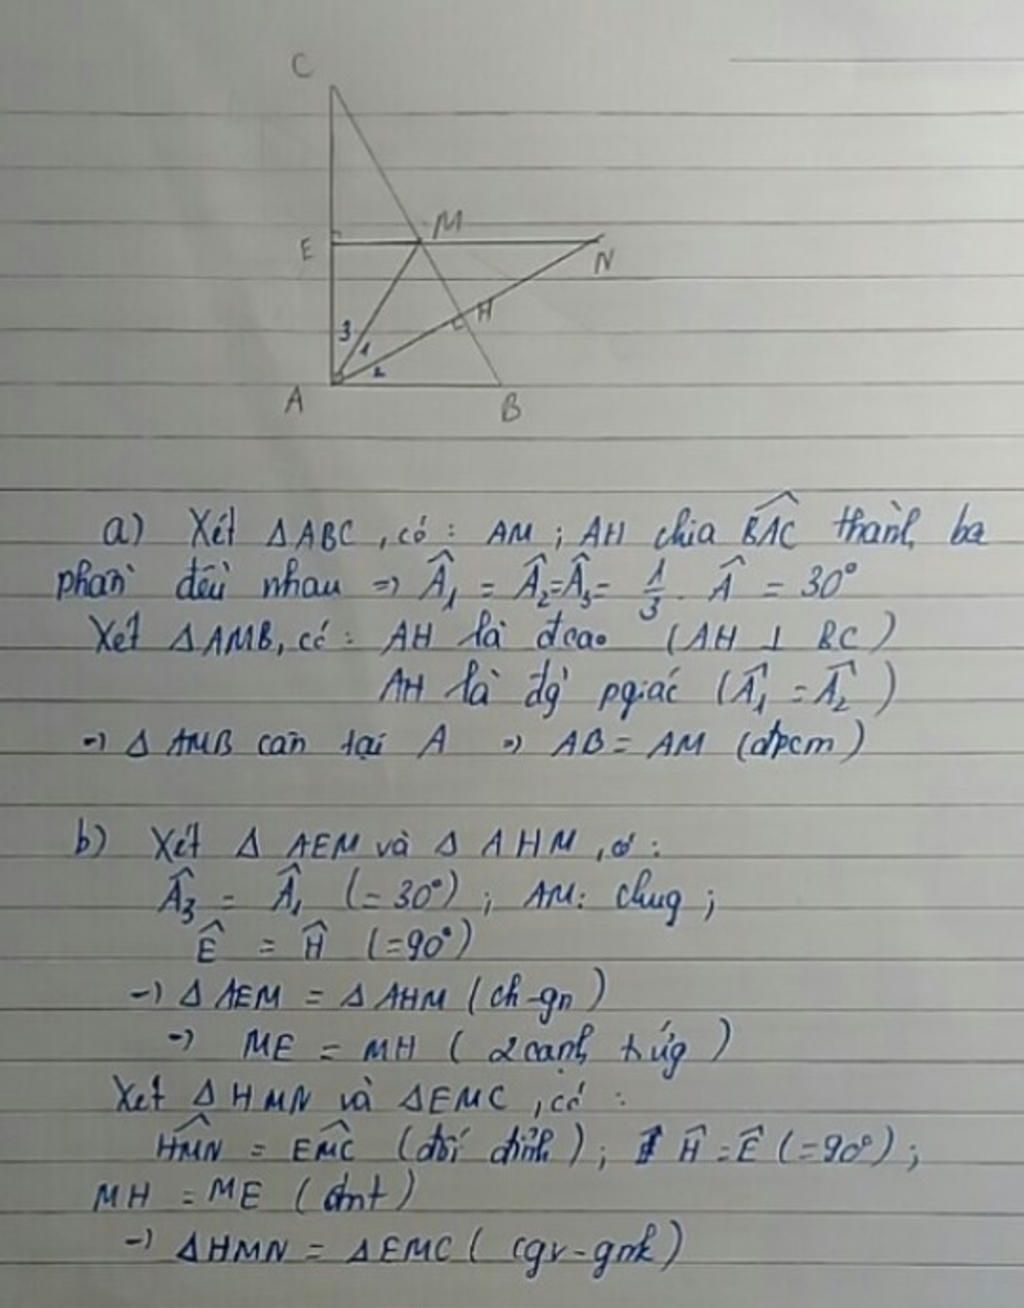 C
E
M
N
H
3
1
2
A
B
a) Xét ΔABC, có: AM; AH chia \widehat{BAC} thành ba
phần đều nhau => Â₁ = Â₂=Â₃= 1/3. Â = 30°
Xét ΔAMB, có: AH là đcao (AH ⊥ BC)
AH là đg` pgiác (Â₁ = Â₂)
=> Δ AMB cân tại A => AB = AM (đpcm)
b) Xét Δ AEM và Δ AHM, có:
Â₃ = Â₁ (= 30°); AM: chug;
Ê = Ĥ (=90°)
=> Δ AEM = Δ AHM (ch-gn)
=> ME = MH (2 cạnh tứg)
Xét ΔHMN và ΔEMC, có:
\widehat{HMN} = \widehat{EMC} (đối đỉnh); Ĥ = Ê (=90°);
MH = ME (cmt)
=> ΔHMN = ΔEMC (cgv-gnk)